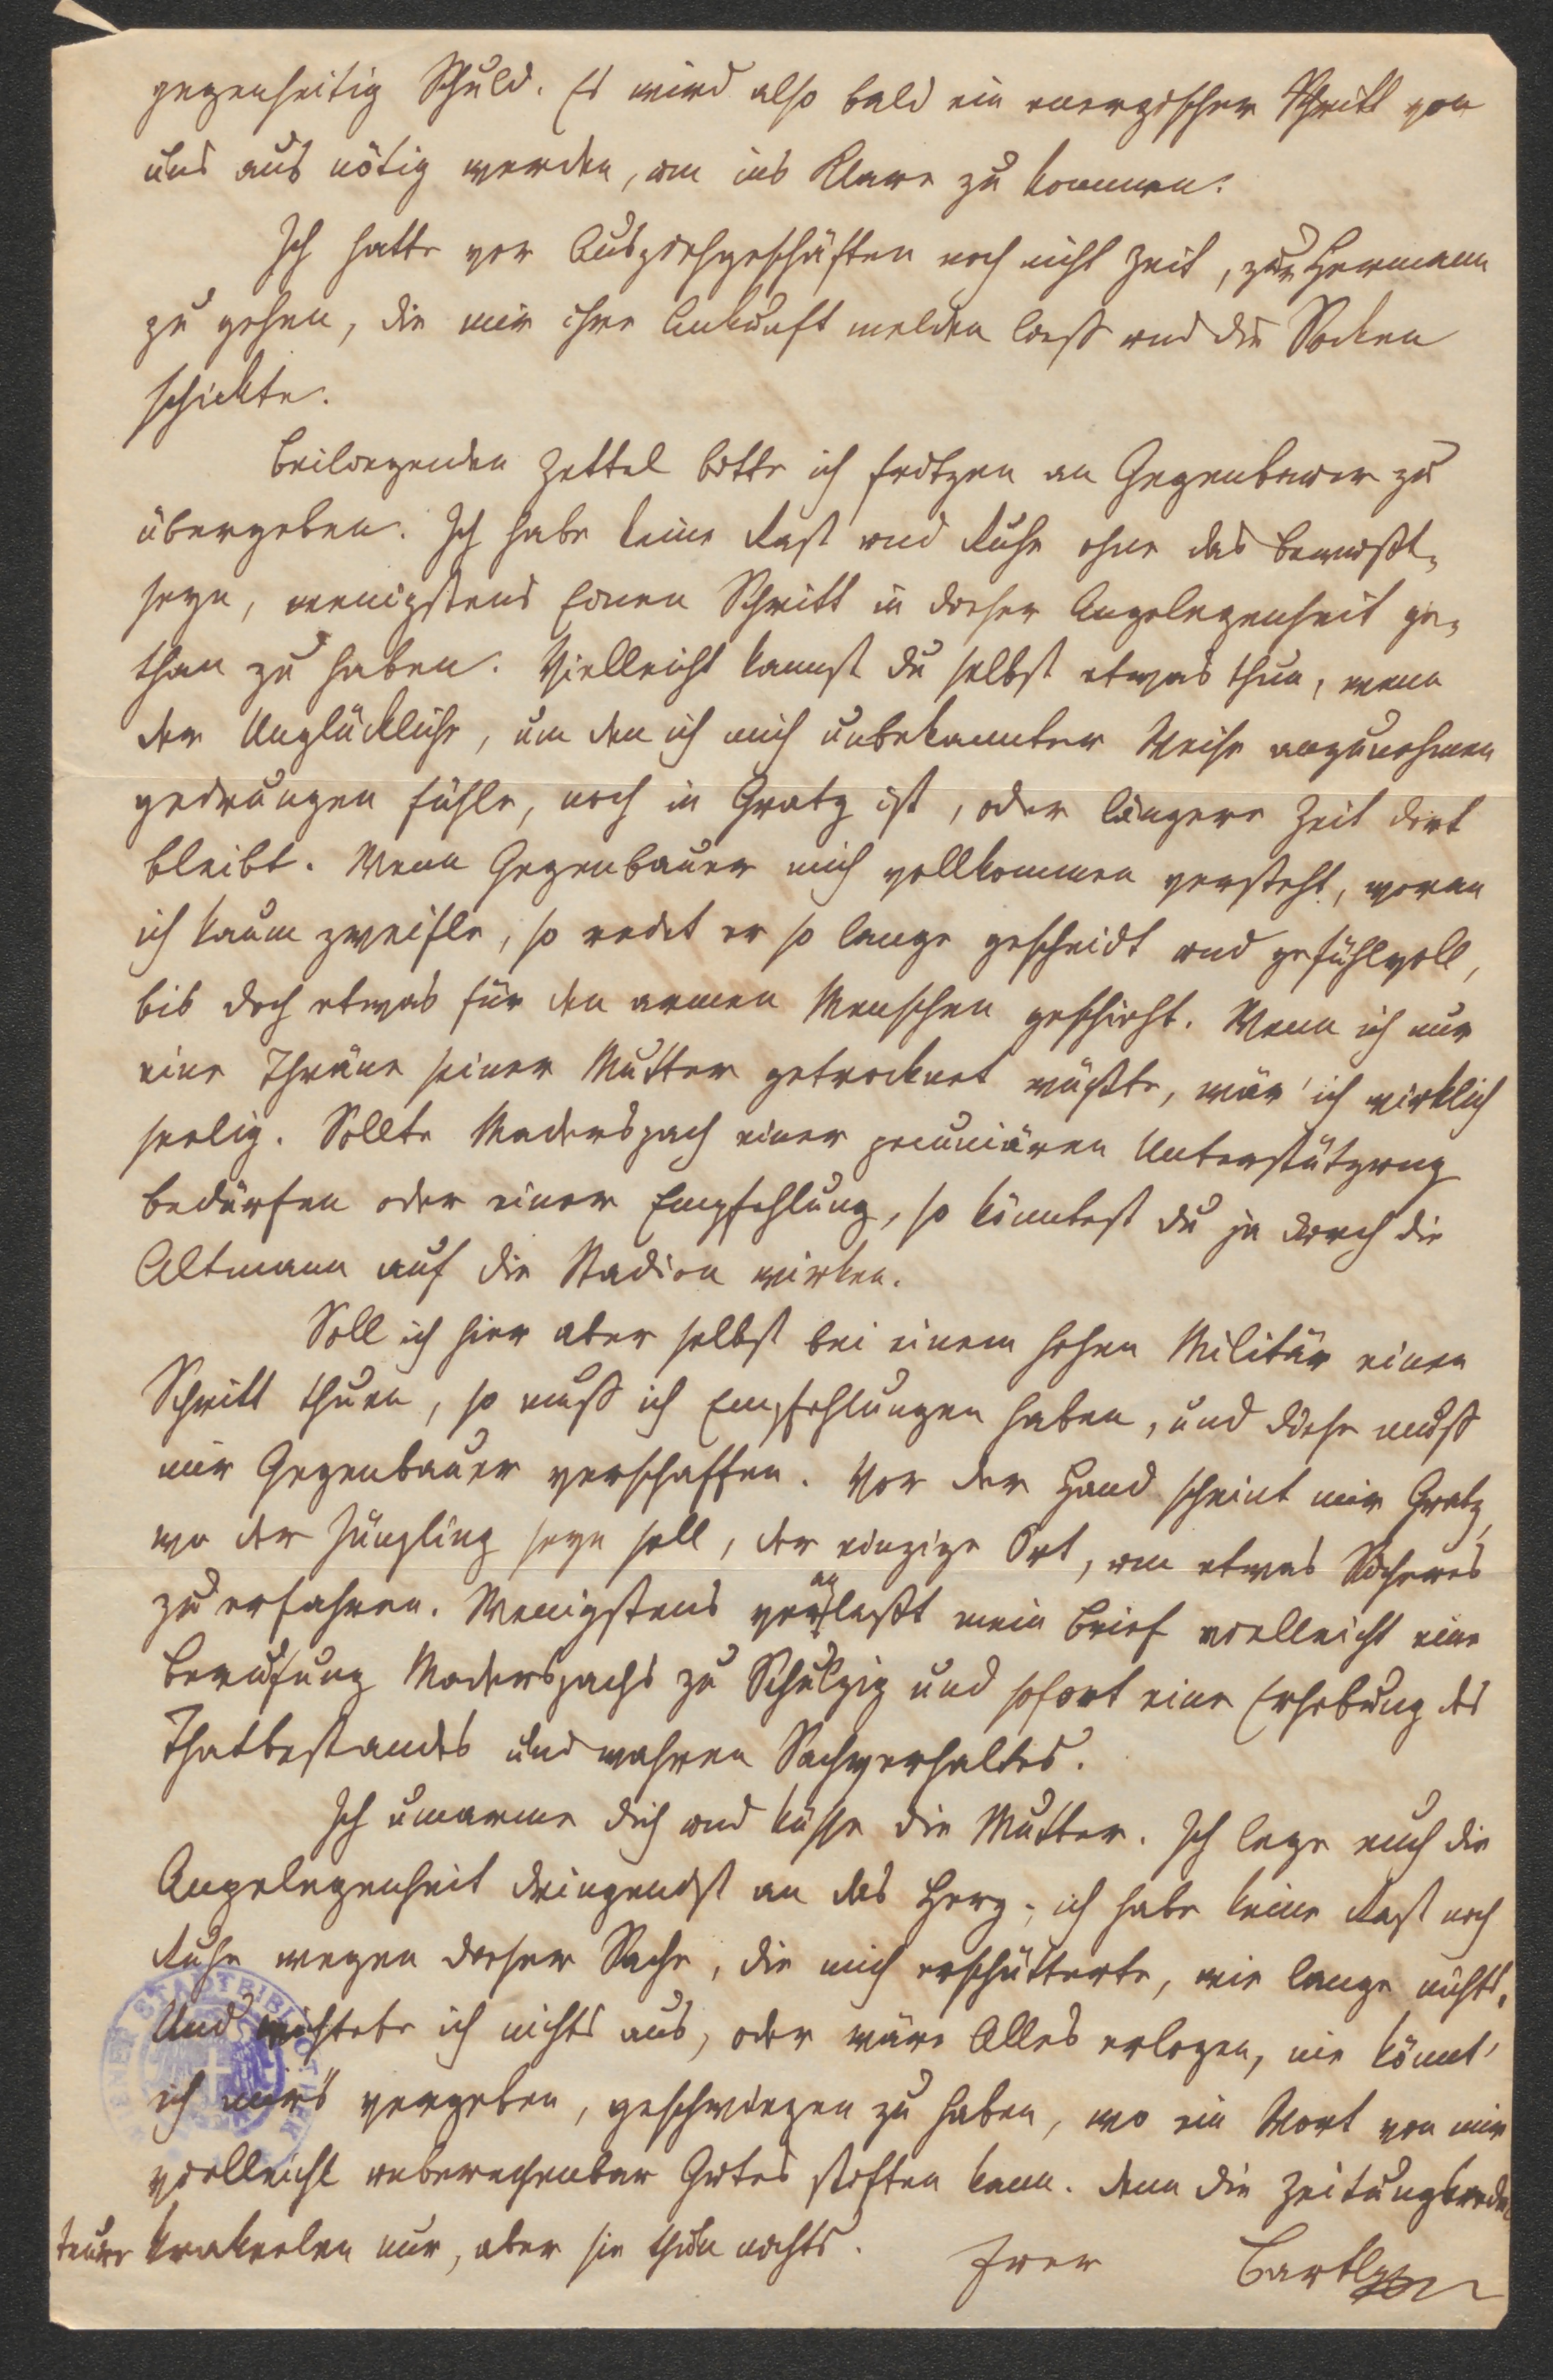 gegenseitig Schuld. Es wird also bald ein energischer Schritt von
uns aus nötig werden, um ins Klare zu kommen.
Ich hatte vor Ausziehgeschäften noch nicht Zeit, zur Hermann
zu gehen, die mir ihre Ankunft melden ließ und die Socken
schickte.
Beiliegenden Zettel bitte ich Fritzen an Gegenbauer zu
übergeben. Ich habe keine Rast und Ruhe ohne das Bewußt-
seyn, wenigstens Einen Schritt in dieser Angelegenheit ge-
than zu haben. Vielleicht kannst du selbst etwas thun, wenn
der Unglückliche, um den ich mich unbekannter Weise anzunehmen
gedrungen fühle, noch in Gratz ist, oder längere Zeit dort
bleibt. Wenn Gegenbauer mich vollkommen versteht, woran
ich kaum zweifle, so redet er so lange gescheidt und gefühlvoll,
bis doch etwas für den armen Menschen geschieht. Wenn ich nur
eine Thräne seiner Mutter getrocknet wüßte, wär' ich wirklich
seelig. Sollte Maderspach einer pecuniären Unterstützung
bedürfen oder einer Empfehlung, so könntest du ja durch die
Altmann auf die Stadion wirken.
Soll ich hier aber selbst bei einem hohen Militär einen
Schritt thuen, so muß ich Empfehlungen haben, und diese muß
mir Gegenbauer verschaffen. Vor der Hand scheint mir Gratz,
wo der Jüngling seyn soll, der einzige Ort, um etwas Sicheres
zu erfahren. Wenigstens veranlaßt mein Brief vielleicht eine
Berufung Maderspachs zu Schulzig und sofort eine Erhebung des
Thatbestandes und wahren Sachverhaltes.
Ich umarme dich und küsse die Mutter. Ich lege euch die
Angelegenheit dringendst an das Herz; ich habe keine Rast noch
Ruhe wegen dieser Sache, die mich erschütterte, wie lange nichts.
Und richtete ich nichts aus, oder wäre Alles erlogen, nie könnt'
ich mir's vergeben, geschwiegen zu haben, wo ein Wort von mir
vielleicht unberechenbar Gutes stiften kann. Denn die Zeitungsredac
teure krakeelen nur, aber sie thun nichts. Euer